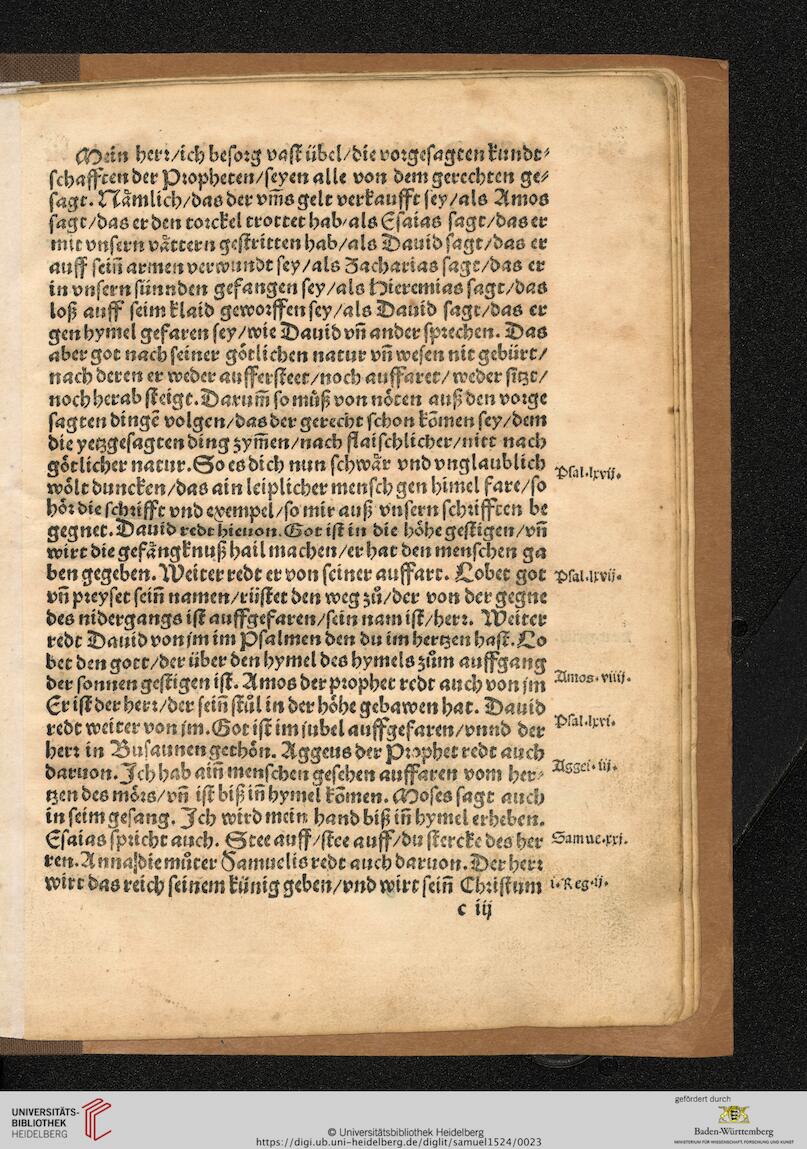 Mein herr/ich besorg vast übel/die vorgesagten kundt⸗
schafften der Propheten/seyen alle von dem gerechten ge⸗
sagt. Nämlich/das der vm̄s gelt verkaufft sey/als Amos
sagt/das er den torckel trottet hab/als Esaias sagt/das er
mit vnsern vättern gestritten hab/als Dauid sagt/das er
auff sein̄ armen verwundt sey/als Zacharias sagt/das er
in vnsern sünnden gefangen sey/als Hieremias sagt/das
loß auff seim klaid geworffen sey/als Dauid sagt/das er
gen hymel gefaren sey/wie Dauid vn̄ ander sprechen. Das
aber got nach seiner götlichen natur vn̄ wesen nit gebürt/
nach deren er weder auffersteet/noch auffaret/weder sitzt/
noch herab steigt. Darum̄ so můß von nöten auß den vorge
sagten dingē volgen/das der gerecht schon kōmen sey/dem
die yetzgesagten ding zym̄en/nach flaischlicher/nitt nach
götlicher natur. So es dich nun schwär vnd vnglaublich
wölt duncken/das ain leiplicher mensch gen himel fare/so
Psal.lxvij.
hör die schrifft vnd exempel/so mir auß vnsern schrifften be
gegnet. Dauid redt hieuon. Got ist in die höhe gestigen/vn̄
wirt die gefängknuß hail machen/er hat den menschen ga
ben gegeben. Weiter redt er von seiner auffart. Lobet got
Psal.lxvij.
vn̄ preyset sein̄ namen/rüstet den weg zů/der von der gegne
des nidergangs ist auffgefaren/sein nam ist/herr. Weiter
redt Dauid von jm im Psalmen den du im hertzen hast. Lo
bet den gott/der über den hymel des hymels zům auffgang
der sonnen gestigen ist. Amos der prophet redt auch von jm
Amos.viiij.
Er ist der herr/der sein̄ stůl in der höhe gebawen hat. Dauid
redt weiter von jm. Got ist im jubel auffgefaren/vnnd der
Psal.lxvi.
herr in Busaunen gethön. Aggeus der Prophet redt auch
daruon. Ich hab ain̄ menschen gesehen auffaren vom her⸗
Aggei.iij.
tzen des mörs/vn̄ ist biß in̄ hymel kōmen. Moses sagt auch
in seim gesang. Ich wird mein hand biß in̄ hymel erheben.
Esaias spricht auch. Stee auff/stee auff/du stercke des her
Samue.xxj.
ren. Anna die můter Samuelis redt auch daruon. Der herr
wirt das reich seinem künig geben/vnd wirt sein̄ Christum
i.Reg.ij.
c iij
UNIVERSITÄTS-
BIBLIOTHEK
HEIDELBERG
© Universitätsbibliothek Heidelberg
https://digi.ub.uni-heidelberg.de/diglit/samuel1524/0023
gefördert durch
Baden-Württemberg
MINISTERIUM FÜR WISSENSCHAFT, FORSCHUNG UND KUNST